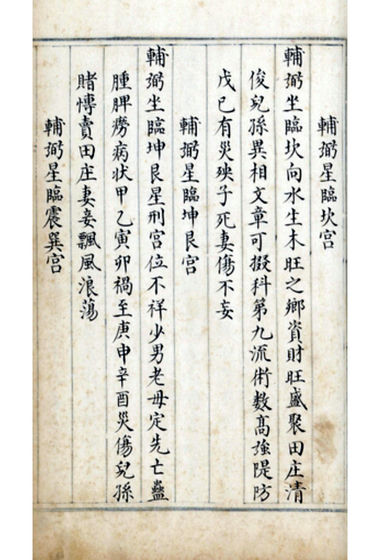 輔弼星臨坎宫
輔弼坐臨坎向水生木旺之鄉資財旺盛聚田庄清
俊兒孫異相文章可掇科第九流術數髙強隄防
戊己有災殃子死妻傷不妄
輔弼星臨坤艮宫
輔弼坐臨坤艮星刑宫位不祥少男老母定先亡蠱
腫脾癆病狀甲乙寅卯禍至庚申辛酉災傷兒孫
賭慱賣田庄妻妾飄風浪蕩
輔弼星臨震巽宫